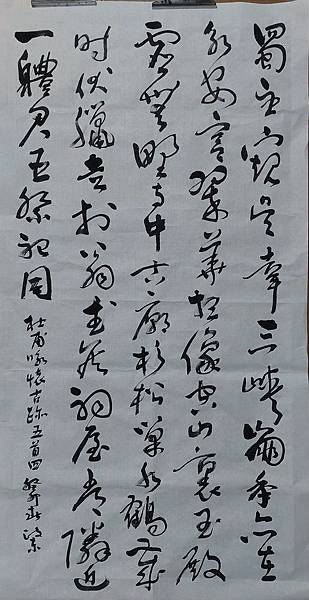 蜀主窺吳幸三峽崩年亦在
永安宮翠華想像空山裏玉殿
虛無野寺中古廟杉松巢水鶴歲
時伏臘走村翁武侯祠屋常鄰近
一體君臣祭祀同
杜甫詠懷古跡五首四